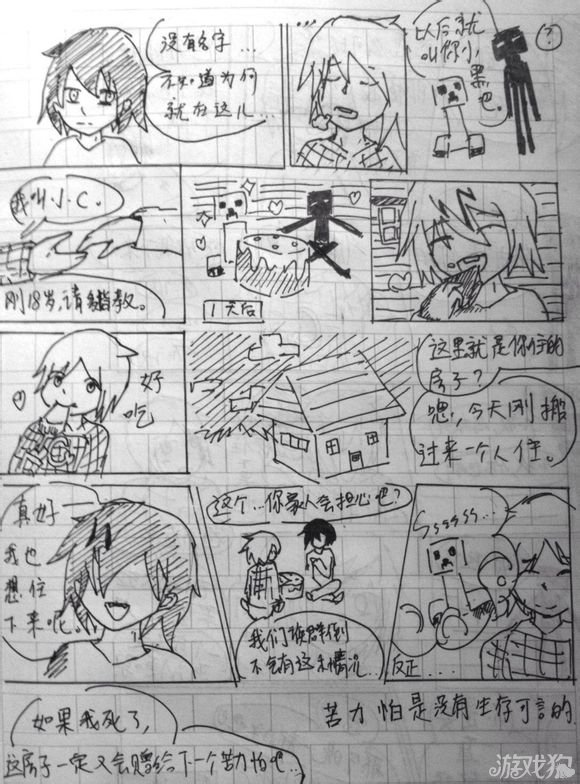 没有名字...
不知道为何
就在这儿...
...
以后就
叫你小
黑吧。
?
我叫J·C。
刚18岁,请多指教。
1天后
好
吃
这里就是你住的
房子?
嗯,今天刚搬
过来一个人住。
真好
我也
想住
下来呢。
这个...你家人会担心吧?
我们
不会有这种情况...
Ssssss...
反正...
如果我死了,
这房子一定又会赠给下一个苦力怕吧...
苦力怕是没有生存可言的
游戏狗